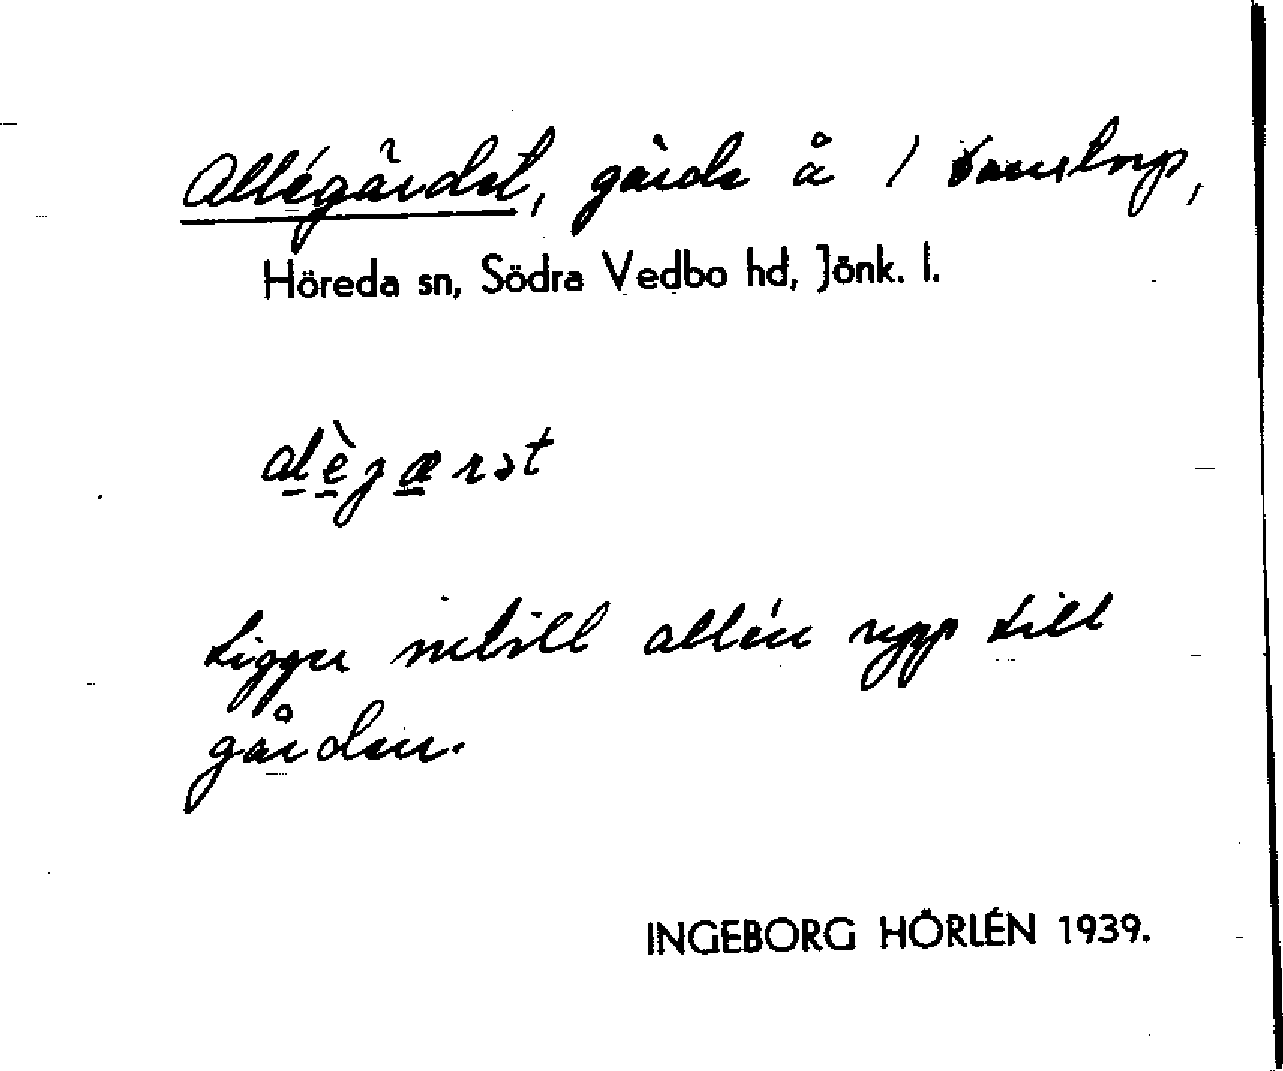 Allégärdet, gärde å 1
Höreda sn, Södra Vedbo hd, Jönk. l.
alèjærət
Ligger intill allén upp till
gården.
INGEBORG HÖRLÉN 1939.